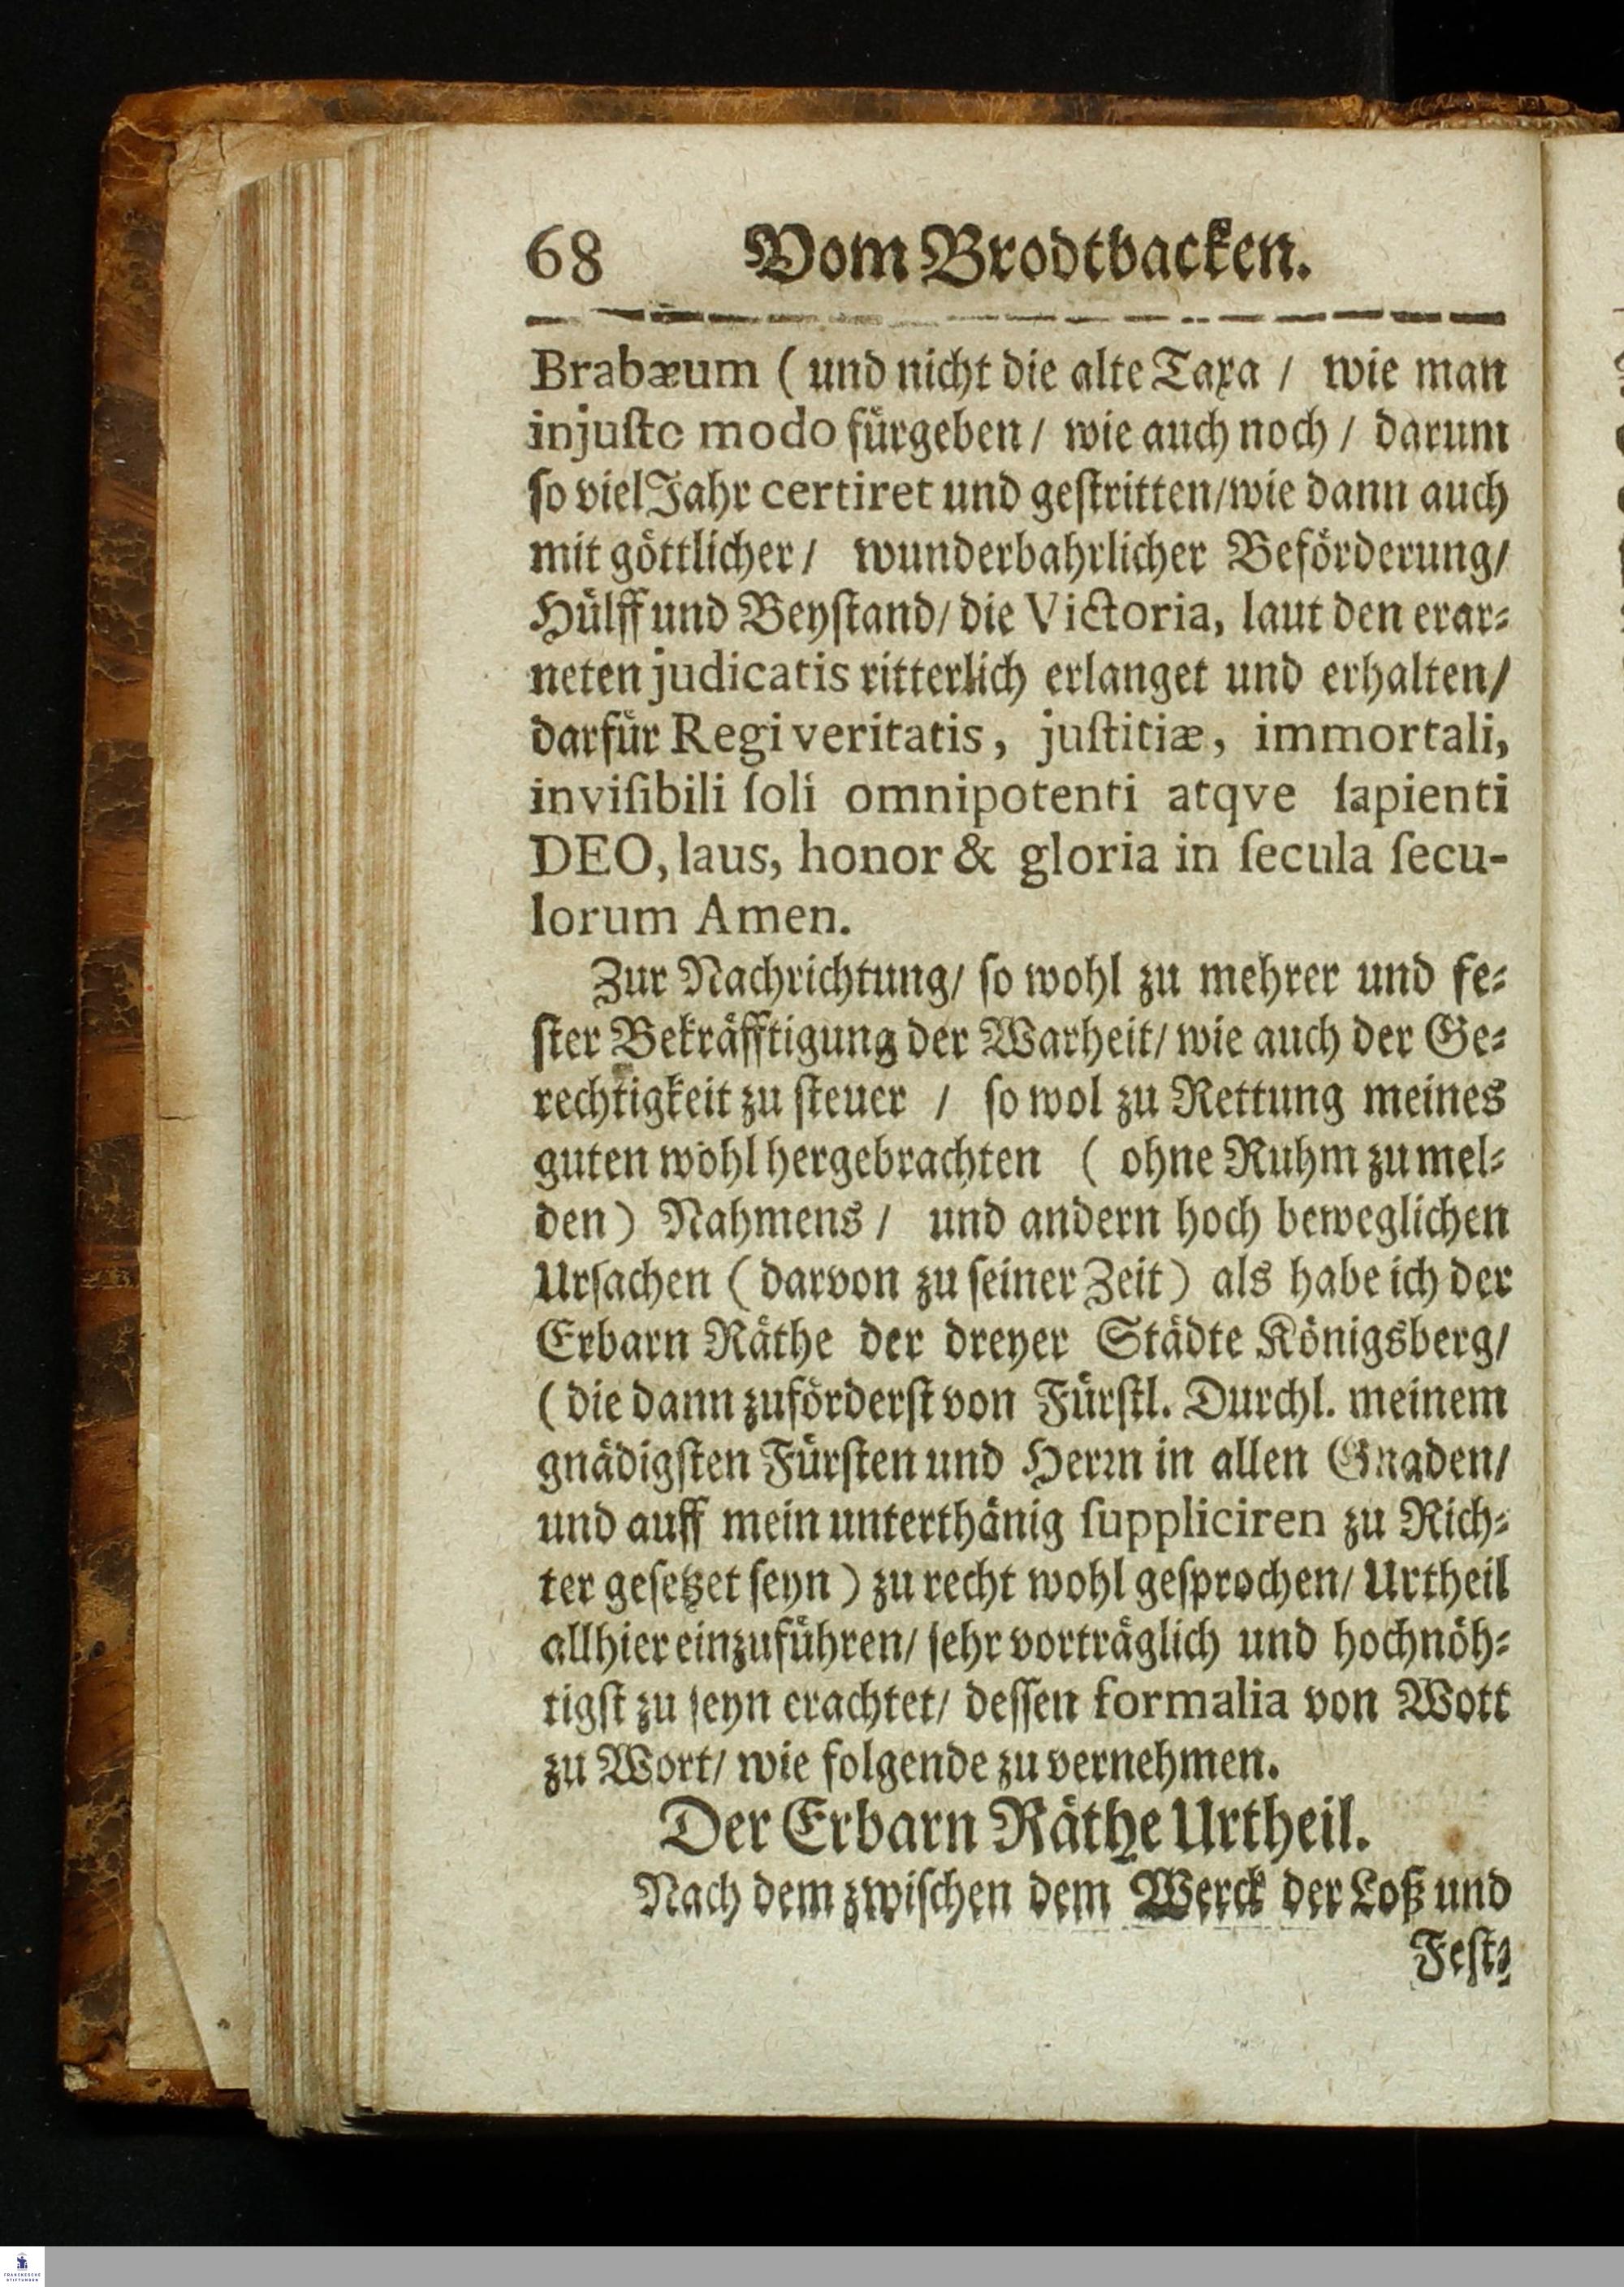 68 Vom Brodtbacken.
Brabæum (und nicht die alte Taxa / wie man
injuſto modo fürgeben / wie auch noch / darum
ſo viel Jahr certiret und geſtritten / wie dann auch
mit göttlicher / wunderbahrlicher Beförderung /
Hülff und Beyſtand / die Victoria, laut den erar⸗
neten judicatis ritterlich erlanget und erhalten /
darfür Regi veritatis, juſtitiæ, immortali,
inviſibili ſoli omnipotenti atqve ſapienti
DEO, laus, honor & gloria in ſecula ſecu-
lorum Amen.
Zur Nachrichtung / ſo wohl zu mehrer und fe⸗
ſter Bekräfftigung der Warheit / wie auch der Ge⸗
rechtigkeit zu ſteuer / ſo wol zu Rettung meines
guten wohl hergebrachten (ohne Ruhm zu mel⸗
den) Nahmens / und andern hoch beweglichen
Urſachen (darvon zu ſeiner Zeit) als habe ich der
Erbarn Räthe der dreyer Städte Königsberg /
(die dann zuförderſt von Fürſtl. Durchl. meinem
gnädigſten Fürſten und Herrn in allen Gnaden /
und auff mein unterthänig ſuppliciren zu Rich⸗
ter geſetzet ſeyn) zu recht wohl geſprochen / Urtheil
allhier einzuführen / ſehr vorträglich und hochnöh⸗
tigſt zu ſeyn erachtet / deſſen formalia von Wott
zu Wort / wie folgende zu vernehmen.
Der Erbarn Räthe Urtheil.
Nach dem zwiſchen dem Werck der Loß und
Feſt⸗
FRANCKESCHE
STIFTUNGEN